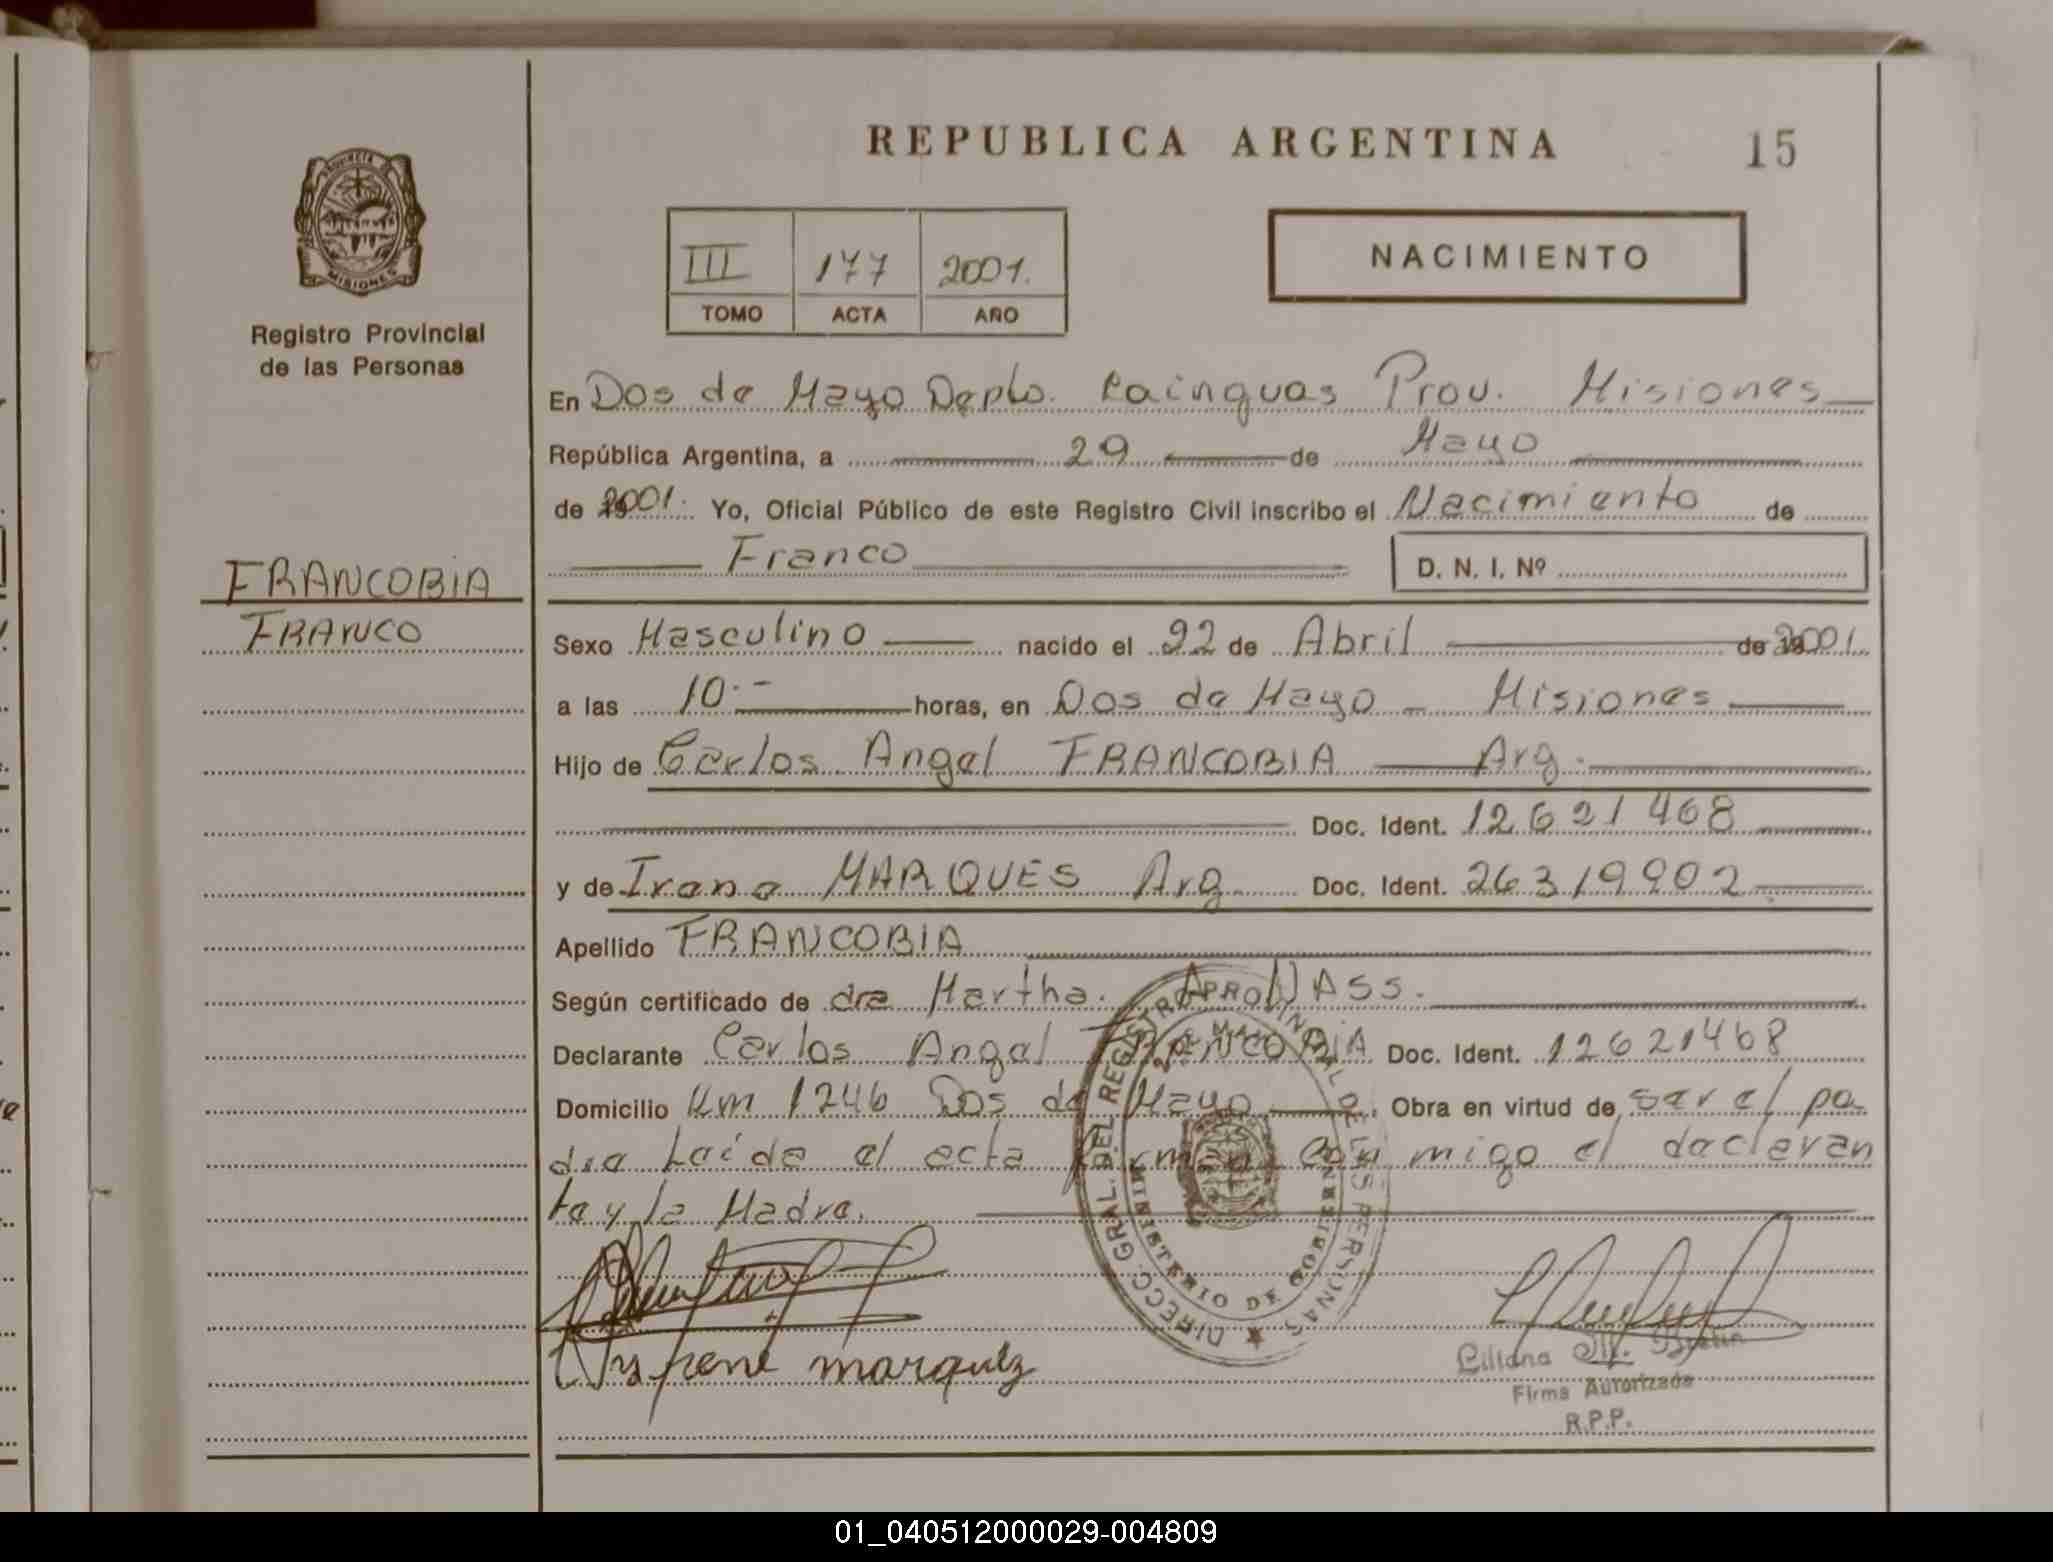 REPUBLICA ARGENTINA
15
PROVINCIA DE
MISIONES
Registro Provincial
de las Personas
III 177 2001.
TOMO ACTA AÑO
NACIMIENTO
En Dos de Mayo Depto. Cainguas Prov. Misiones
República Argentina, a 29 de Mayo
de 2001. Yo, Oficial Público de este Registro Civil inscribo el Nacimiento de
Franco
D. N. I. Nº
FRANCOBIA
FRANCO
Sexo Masculino nacido el 22 de Abril de 2001.
a las 10.- horas, en Dos de Mayo - Misiones
Hijo de Carlos Angel FRANCOBIA Arg.
Doc. Ident. 12621468
y de Irene MARQUES Arg. Doc. Ident. 26319902
Apellido FRANCOBIA
Según certificado de dra Martha. A. NASS.
Declarante Carlos Angel FRANCOBIA Doc. Ident. 12621468
Domicilio Km 1246 Dos de Mayo Obra en virtud de ser el pa
dre Leída el acta firman con migo el declaran
te y la Madre.
DIRECC. GRAL. DEL REGISTRO PROVINCIAL DE LAS PERSONAS
MINISTERIO DE GOBIERNO
Irene marquez
Liliana M.
Firma Autorizada
R.P.P.
01_040512000029-004809